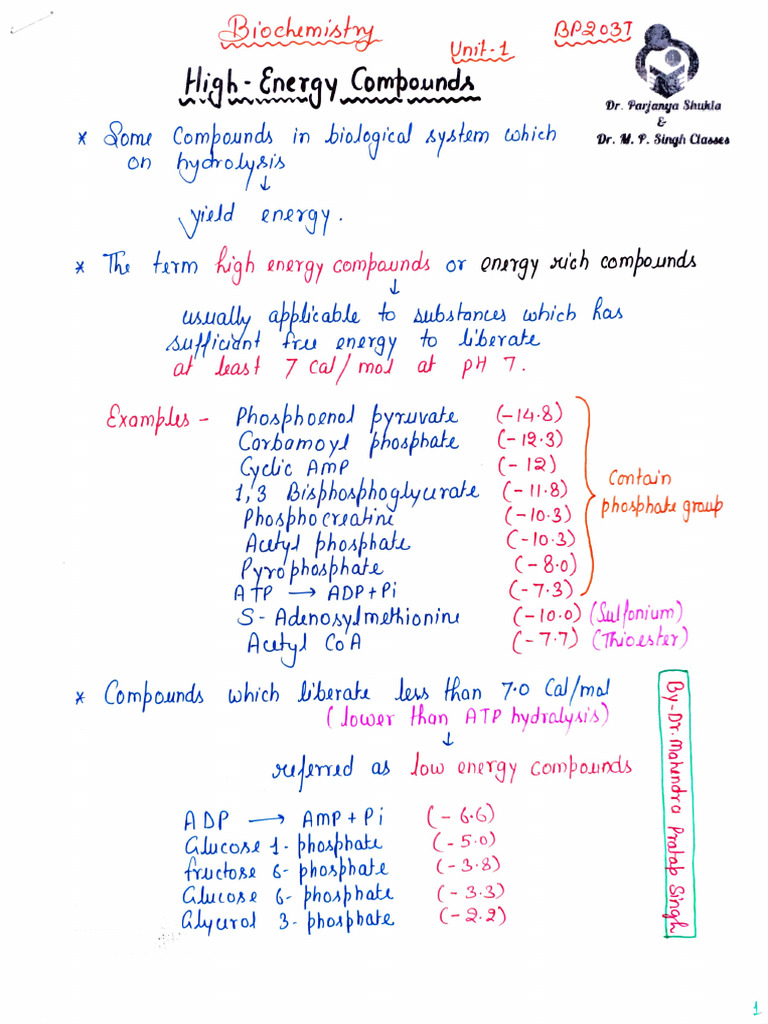 Biochemistry
BP203T
Unit-1
High-Energy Compounds
Dr. Parjanya Shukla
&
Dr. M. P. Singh Classes
* Some Compounds in biological system which
on hydrolysis
↓
yield energy.
* The term high energy compounds or energy rich compounds
↓
usually applicable to substances which has
sufficient free energy to liberate
at least 7 Cal/mol at pH 7.
Examples - Phosphoenol pyruvate (-14.8)
Carbamoyl phosphate (-12.3)
Cyclic AMP (-12)
1,3 Bisphosphoglycerate (-11.8)
Phosphocreatine (-10.3)
Acetyl phosphate (-10.3)
Pyrophosphate (-8.0)
ATP → ADP+Pi (-7.3)
Contain
phosphate group
S-Adenosylmethionine (-10.0) (Sulfonium)
Acetyl CoA (-7.7) (Thioester)
* Compounds which liberate less than 7.0 Cal/mol
(lower than ATP hydralysis)
↓
referred as low energy compounds
ADP → AMP+Pi (-6.6)
Glucose 1-phosphate (-5.0)
fructose 6-phosphate (-3.8)
Glucose 6-phosphate (-3.3)
Glycerol 3-phosphate (-2.2)
By-Dr. Mahendra Pratap Singh
1